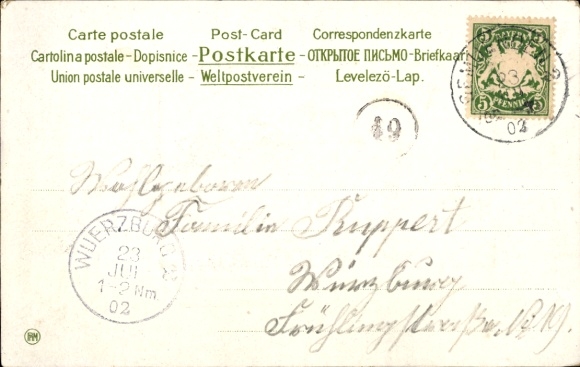 Carte postale Post-Card Correspondenzkarte
Cartolina postale – Dopisnice – Postkarte – ОТКРЫТОЕ ПИСЬМО – Briefkaart
Union postale universelle – Weltpostverein – Levelező-Lap.
5 5
PFENNIG
23
02
19
Wohlgeboren
Familie Ruppert
Würzburg
Frühlingstrasse No 19.
WUERZBURG 2
23
JUL
1-2 Nm
02